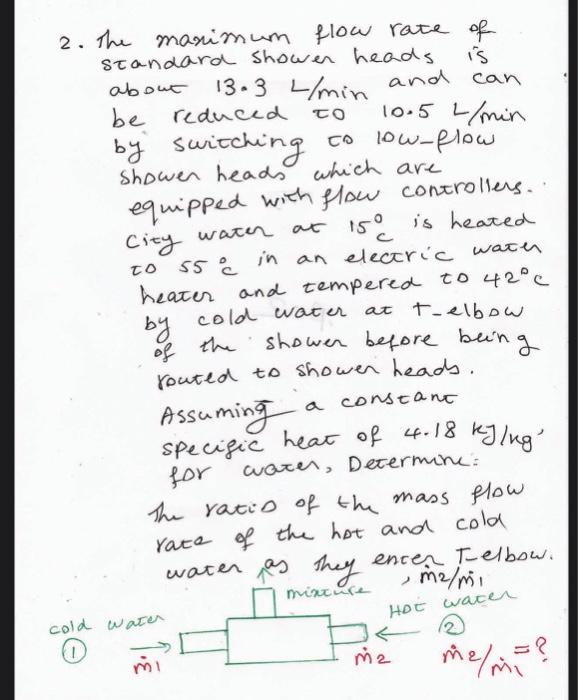 2. The maximum flow rate of
standard shower heads is
about 13.3 L/min and can
be reduced to 10.5 L/min
by switching to low-flow
shower heads which are
equipped with flow controllers.
City water at 15°C is heated
to 55°C in an electric water
heater and tempered to 42°C
by cold water at T-elbow
of the shower before being
routed to shower heads.
Assuming a constant
specific heat of 4.18 kJ/kg°
for water, Determine:
The ratio of the mass flow
rate of the hot and cold
water as they enter T-elbow.
, ṁ2/ṁ1
mixture
Hot water
cold water
②
①
ṁ1
ṁ2
ṁ2/ṁ1 = ?